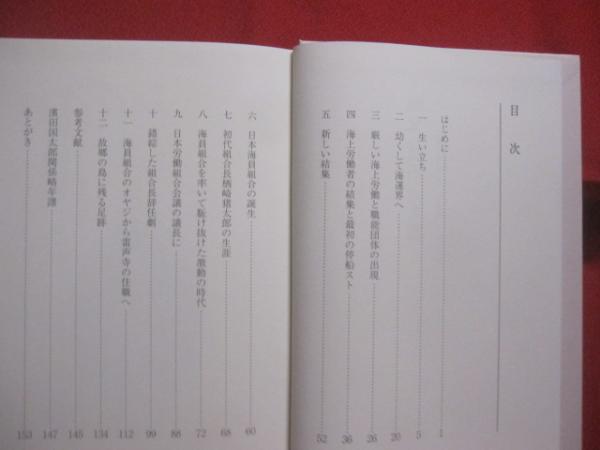 目次
はじめに 1
一 生い立ち 5
二 幼くして海運界へ 20
三 厳しい海上労働と職能団体の出現 26
四 海上労働者の結集と最初の停船スト 36
五 新しい結集 52
六 日本海員組合の誕生 60
七 初代組合長楢崎猪太郎の生涯 68
八 海員組合を率いて駈け抜けた激動の時代 72
九 日本労働組合会議の議長に 88
十 錯綜した組合長辞任劇 99
十一 海員組合のオヤジから雷声寺の住職へ 112
十二 故郷の島に残る足跡 134
参考文献 145
濱田国太郎関係略年譜 147
あとがき 153